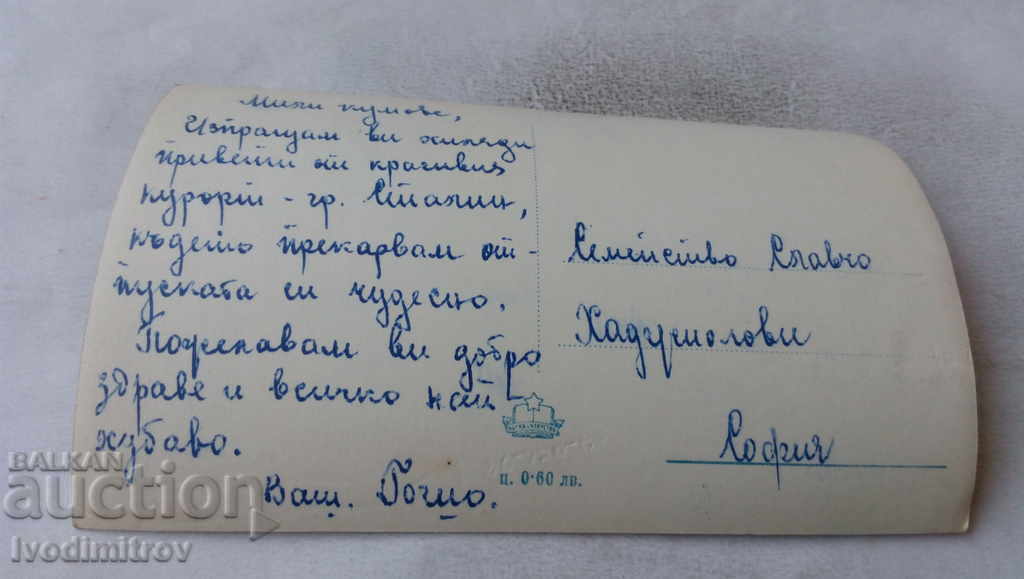 Мили кумове,
Изпращам ви хиляди
привети от красивия
курорт - гр. Сталин,
където прекарвам от-
пуската си чудесно.
Пожелавам ви добро
здраве и всичко най
хубаво.
Ваш. Гочо.
Семейство Славчо
Хаджиолови
София
ц. 0·60 лв.
BALKAN
auction
Ivodimitrov